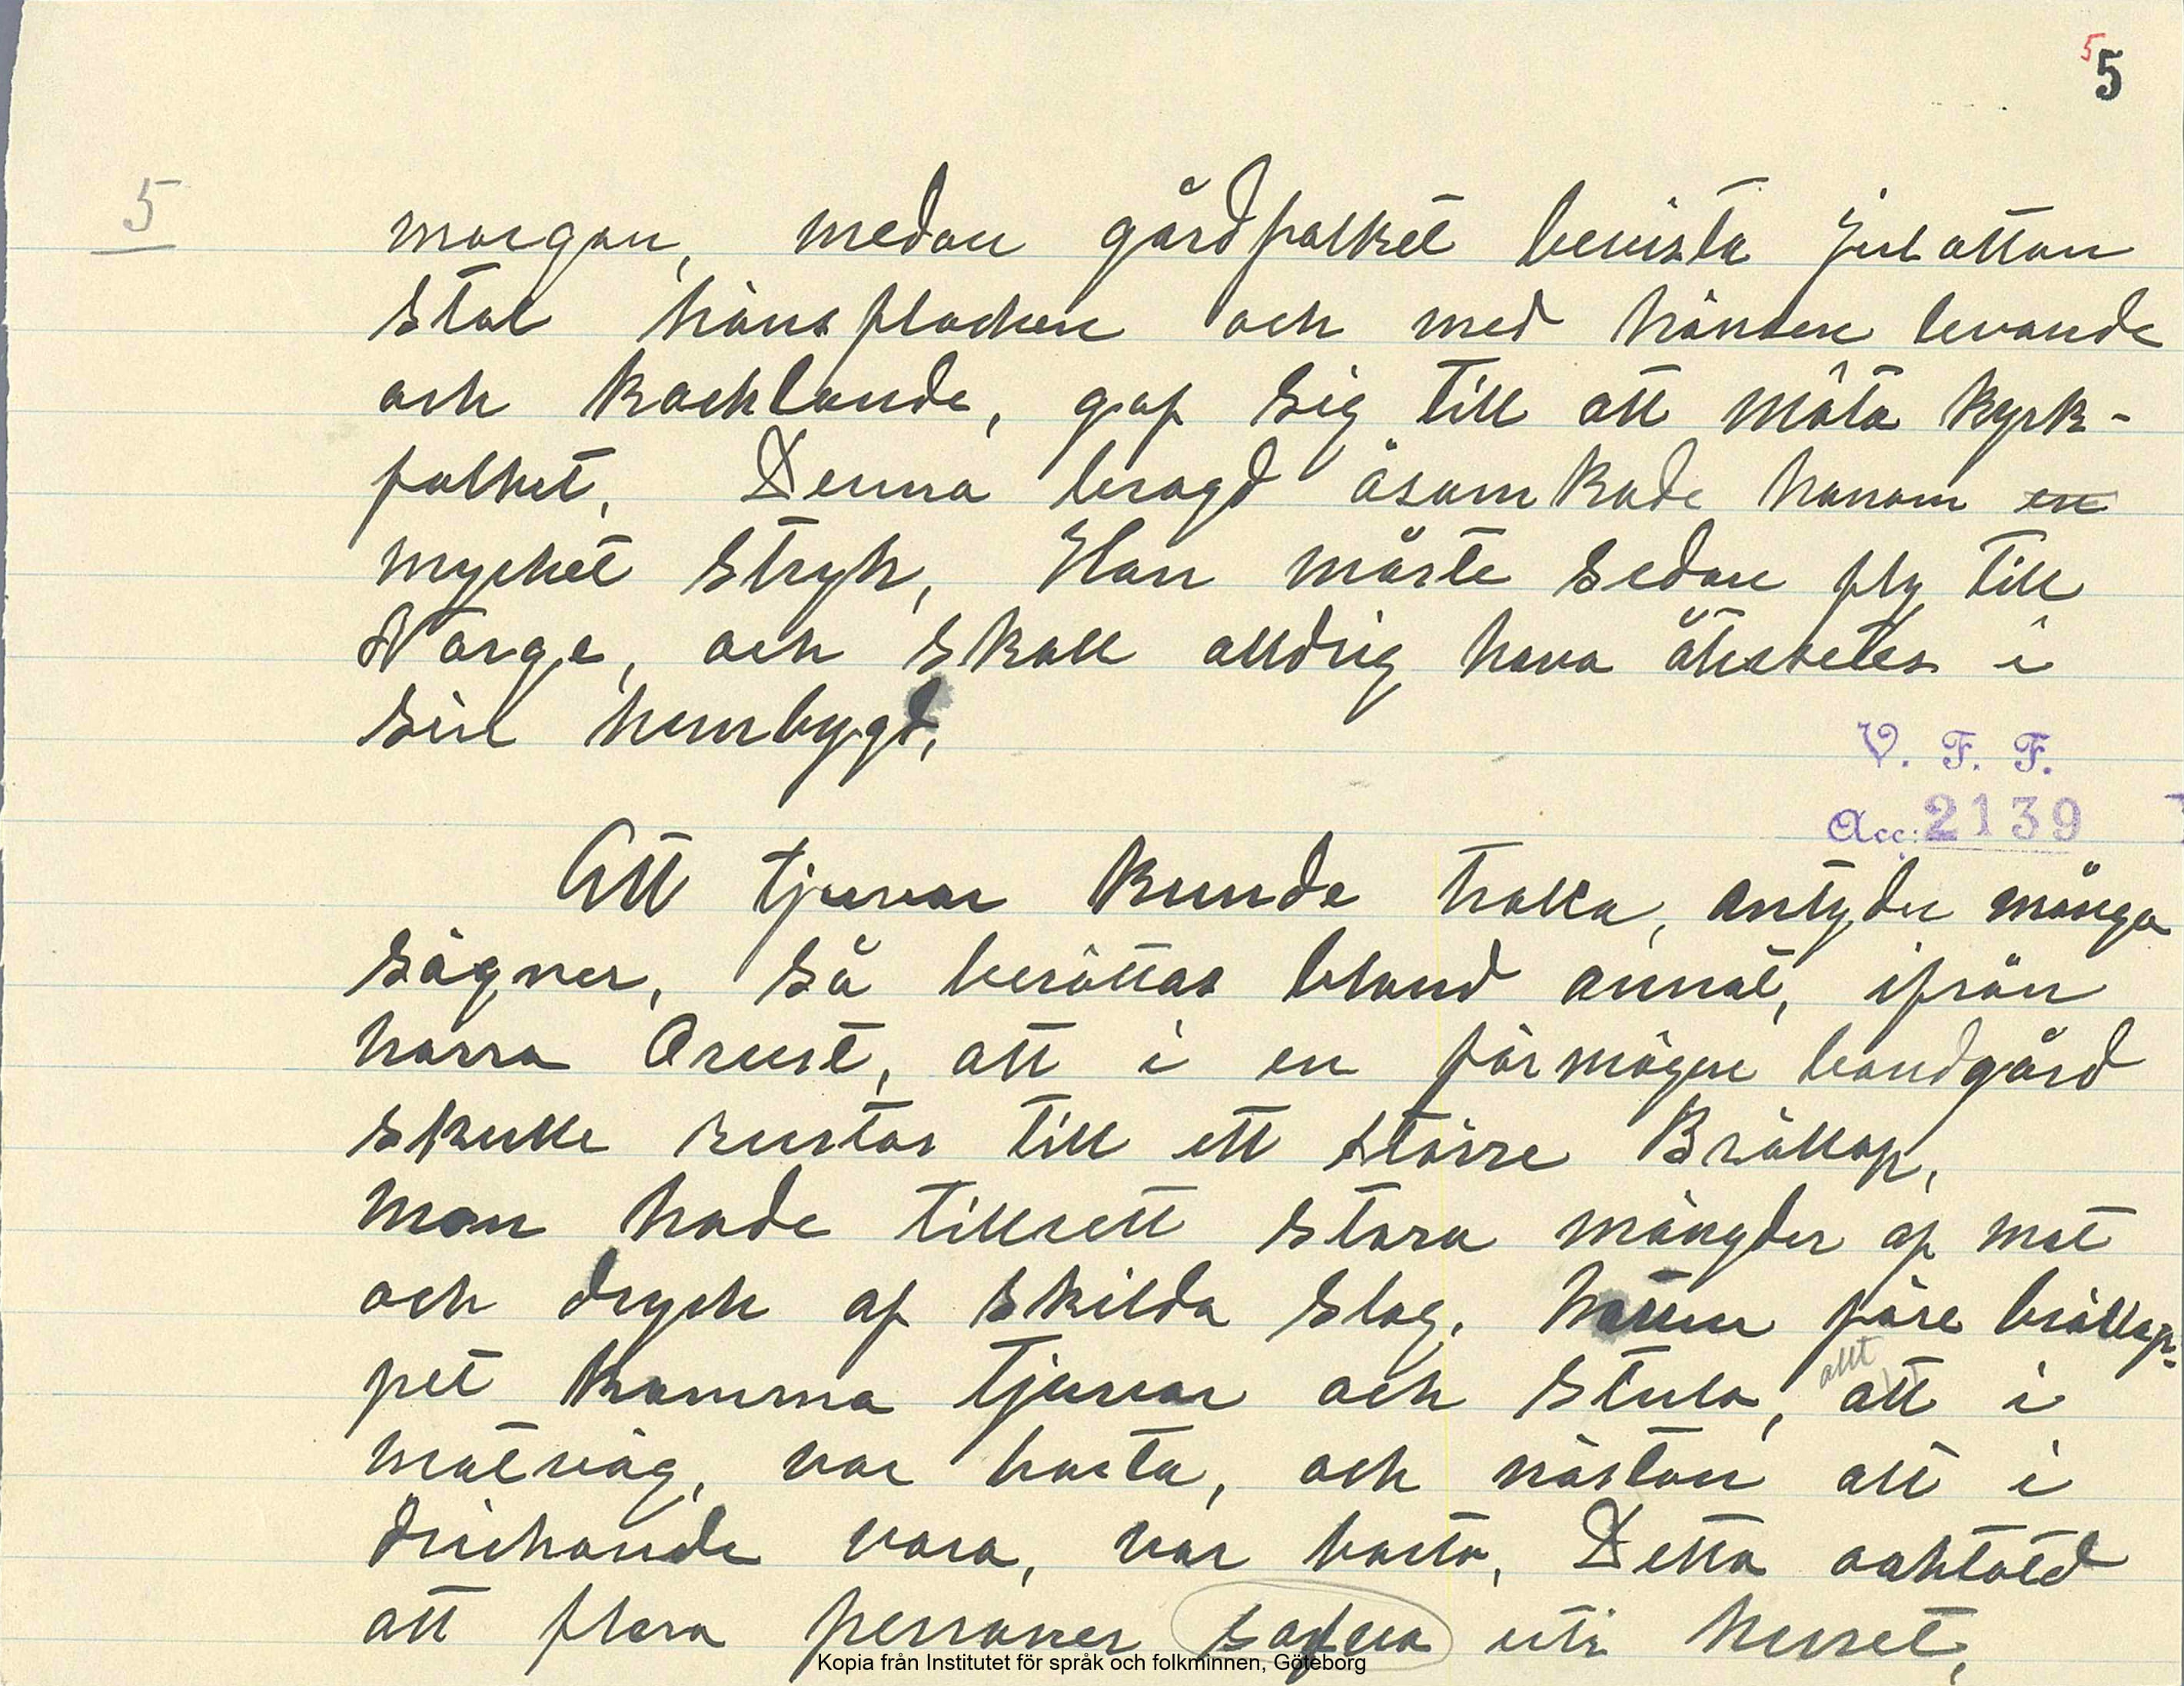 5
5
5
morgon, medan gårdfolket bevista julottan
stal hönsflocken och med hönsen levande
och kacklande, gaf sig till att möta kyrk-
folket. Denna bragd åsamkade honom en
mycket stryk, Han måste sedan fly till
Norge, och skall alldrig hava återsetts i
sin hembygd.
V. F. F.
Acc: 2139
Att tjuvar kunde trolla, antyder många
sägner, så berättas bland annat, ifrån
norra Orust, att i en förmögen bondgård
skulle rustas till ett större Bröllop,
man hade tillrett stora mängder af mat
och dryck af skilda slag. Natten före bröllop-
pet komma tjuvar och stula, allt att i
matväg, var borta, och nästan alt i
drickande vara, var borta, Detta oaktatd
att flera personer sofva uti huset,
Kopia från Institutet för språk och folkminnen, Göteborg